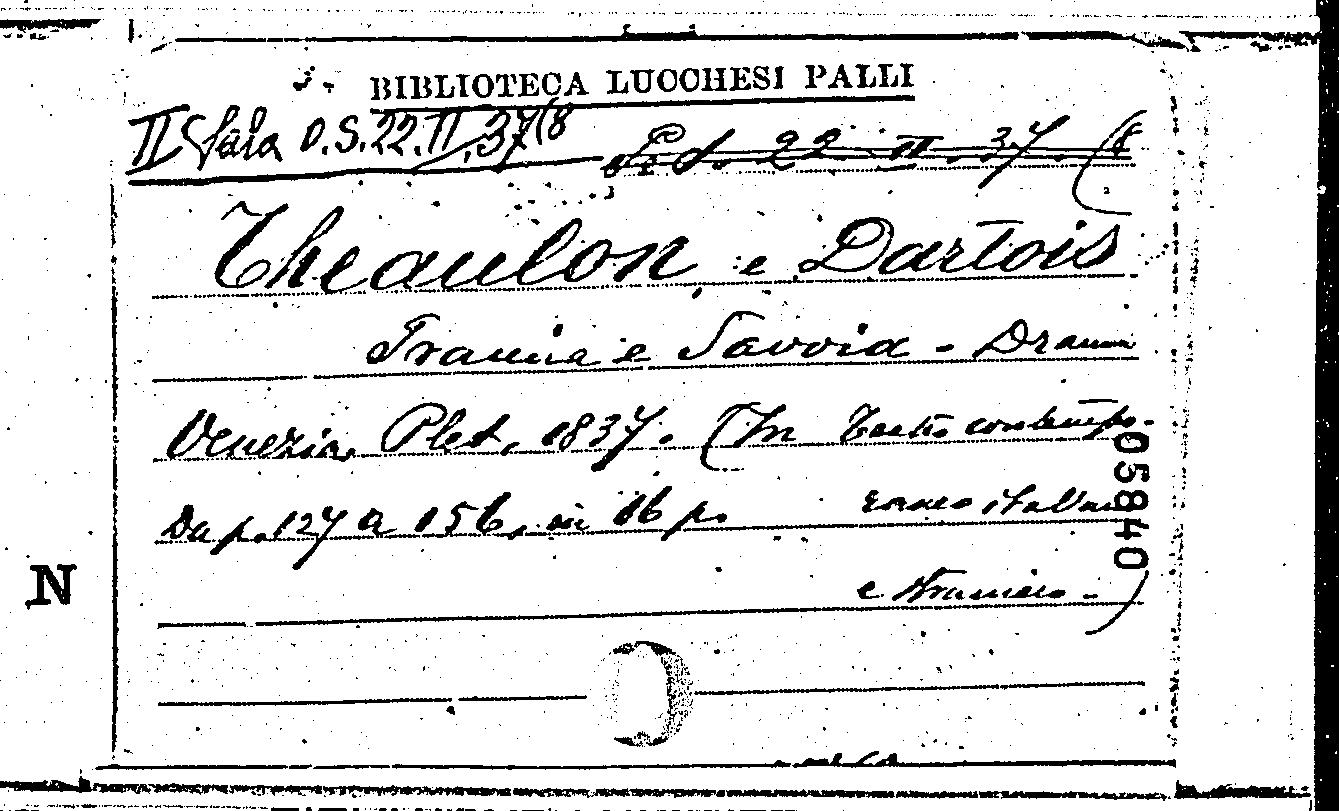 BIBLIOTECA LUCCHESI PALLI
II Sala O.S.22.II.37(8
22 II. 37. (8
Theaulon e Dartois
Francia e Savoia - Dramma
Venezia, Plet, 1837. (In Teatro contempo-
Da p. 127 a 156, in 16 p. raneo italiano
e straniero -)
05840
N